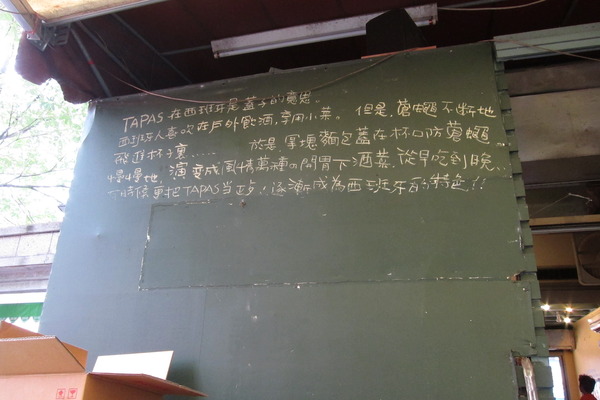 TAPAS 在西班牙是蓋子的意思。
西班牙人喜歡在戶外飲酒,享用小菜。 但是,蒼蠅不斷地
飛進杯子裏...... 於是,單塊麵包蓋在杯口防蒼蠅...
慢慢地, 演變成風情萬種の開胃下酒菜,從早吃到晚..
時候更把TAPAS當正歺!逐漸成為西班牙的特色!!